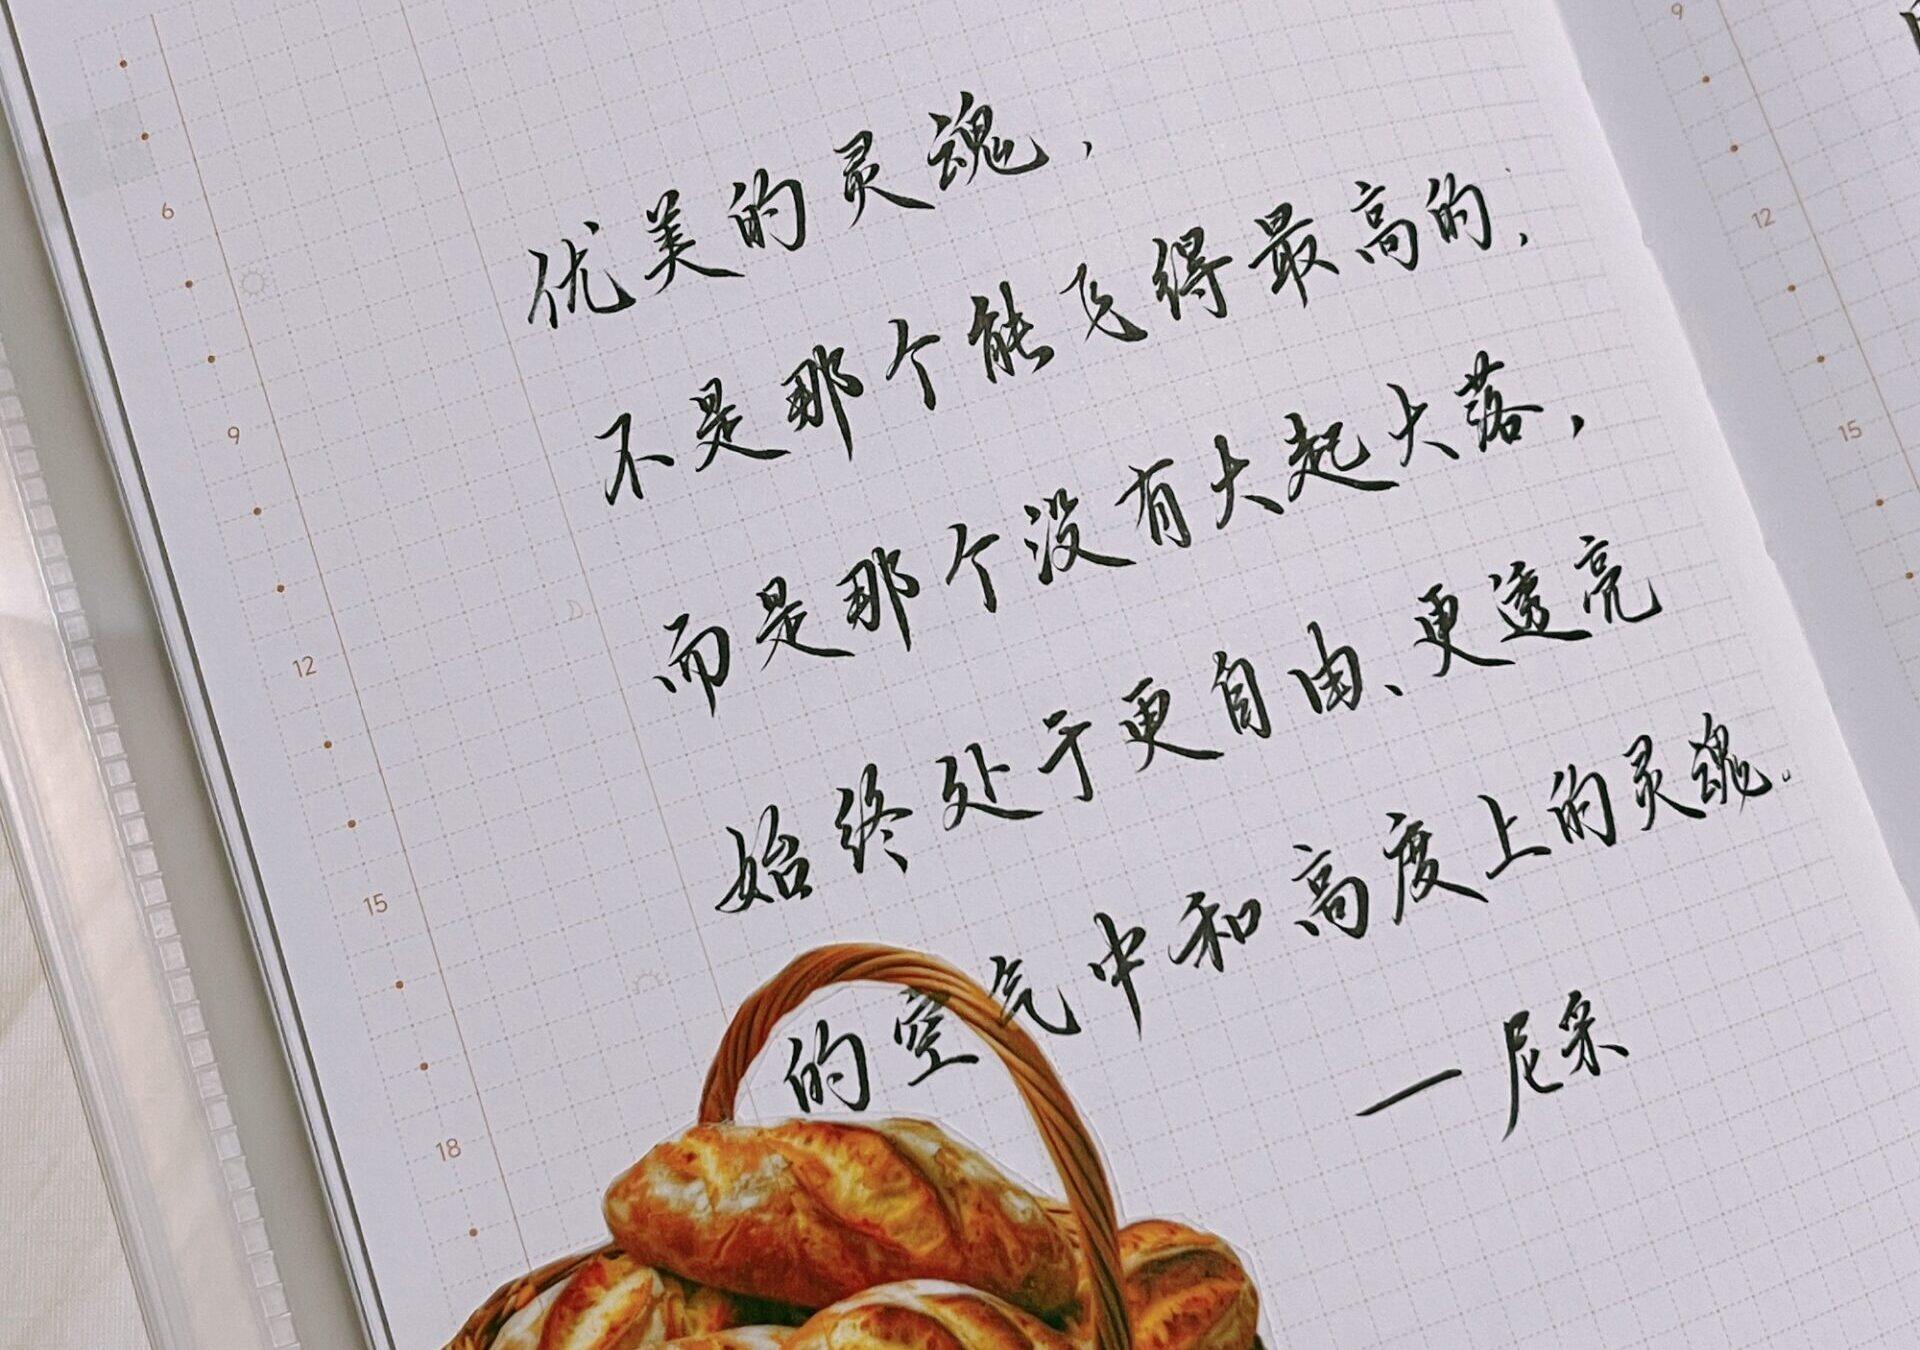 优美的灵魂，
不是那个能飞得最高的，
而是那个没有大起大落，
始终处于更自由、更透亮
的空气中和高度上的灵魂。
—尼采
6
9
12
15
18
9
12
15